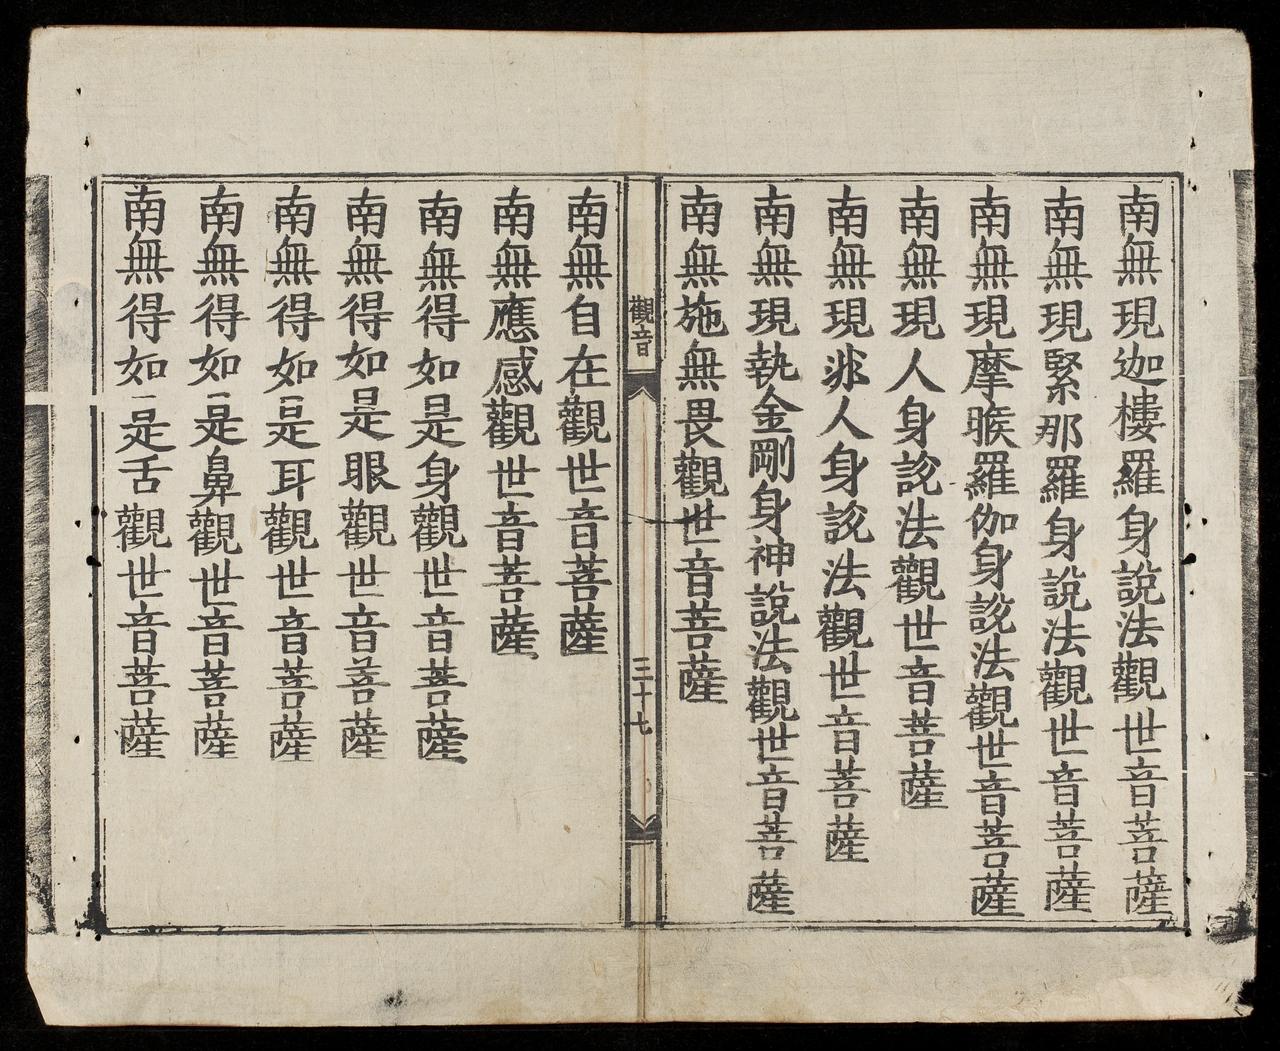 南無現迦樓羅身說法觀世音菩薩
南無現緊那羅身說法觀世音菩薩
南無現摩睺羅伽身說法觀世音菩薩
南無現人身說法觀世音菩薩
南無現非人身說法觀世音菩薩
南無現執金剛身神說法觀世音菩薩
南無施無畏觀世音菩薩
觀音
三十七
南無自在觀世音菩薩
南無應感觀世音菩薩
南無得如是身觀世音菩薩
南無得如是眼觀世音菩薩
南無得如是耳觀世音菩薩
南無得如是鼻觀世音菩薩
南無得如是舌觀世音菩薩